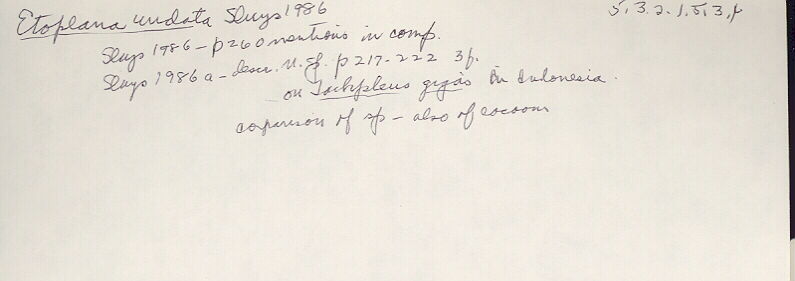 Etoplana undata Sluys 1986
5.3.2.1.5.3.
Sluys 1986 - p260 mentions in comp.
Sluys 1986a - descr. n. sp. p 217-222 3p.
on Tachypleus gigas in Indonesia.
coparison of sp - also of cocoons